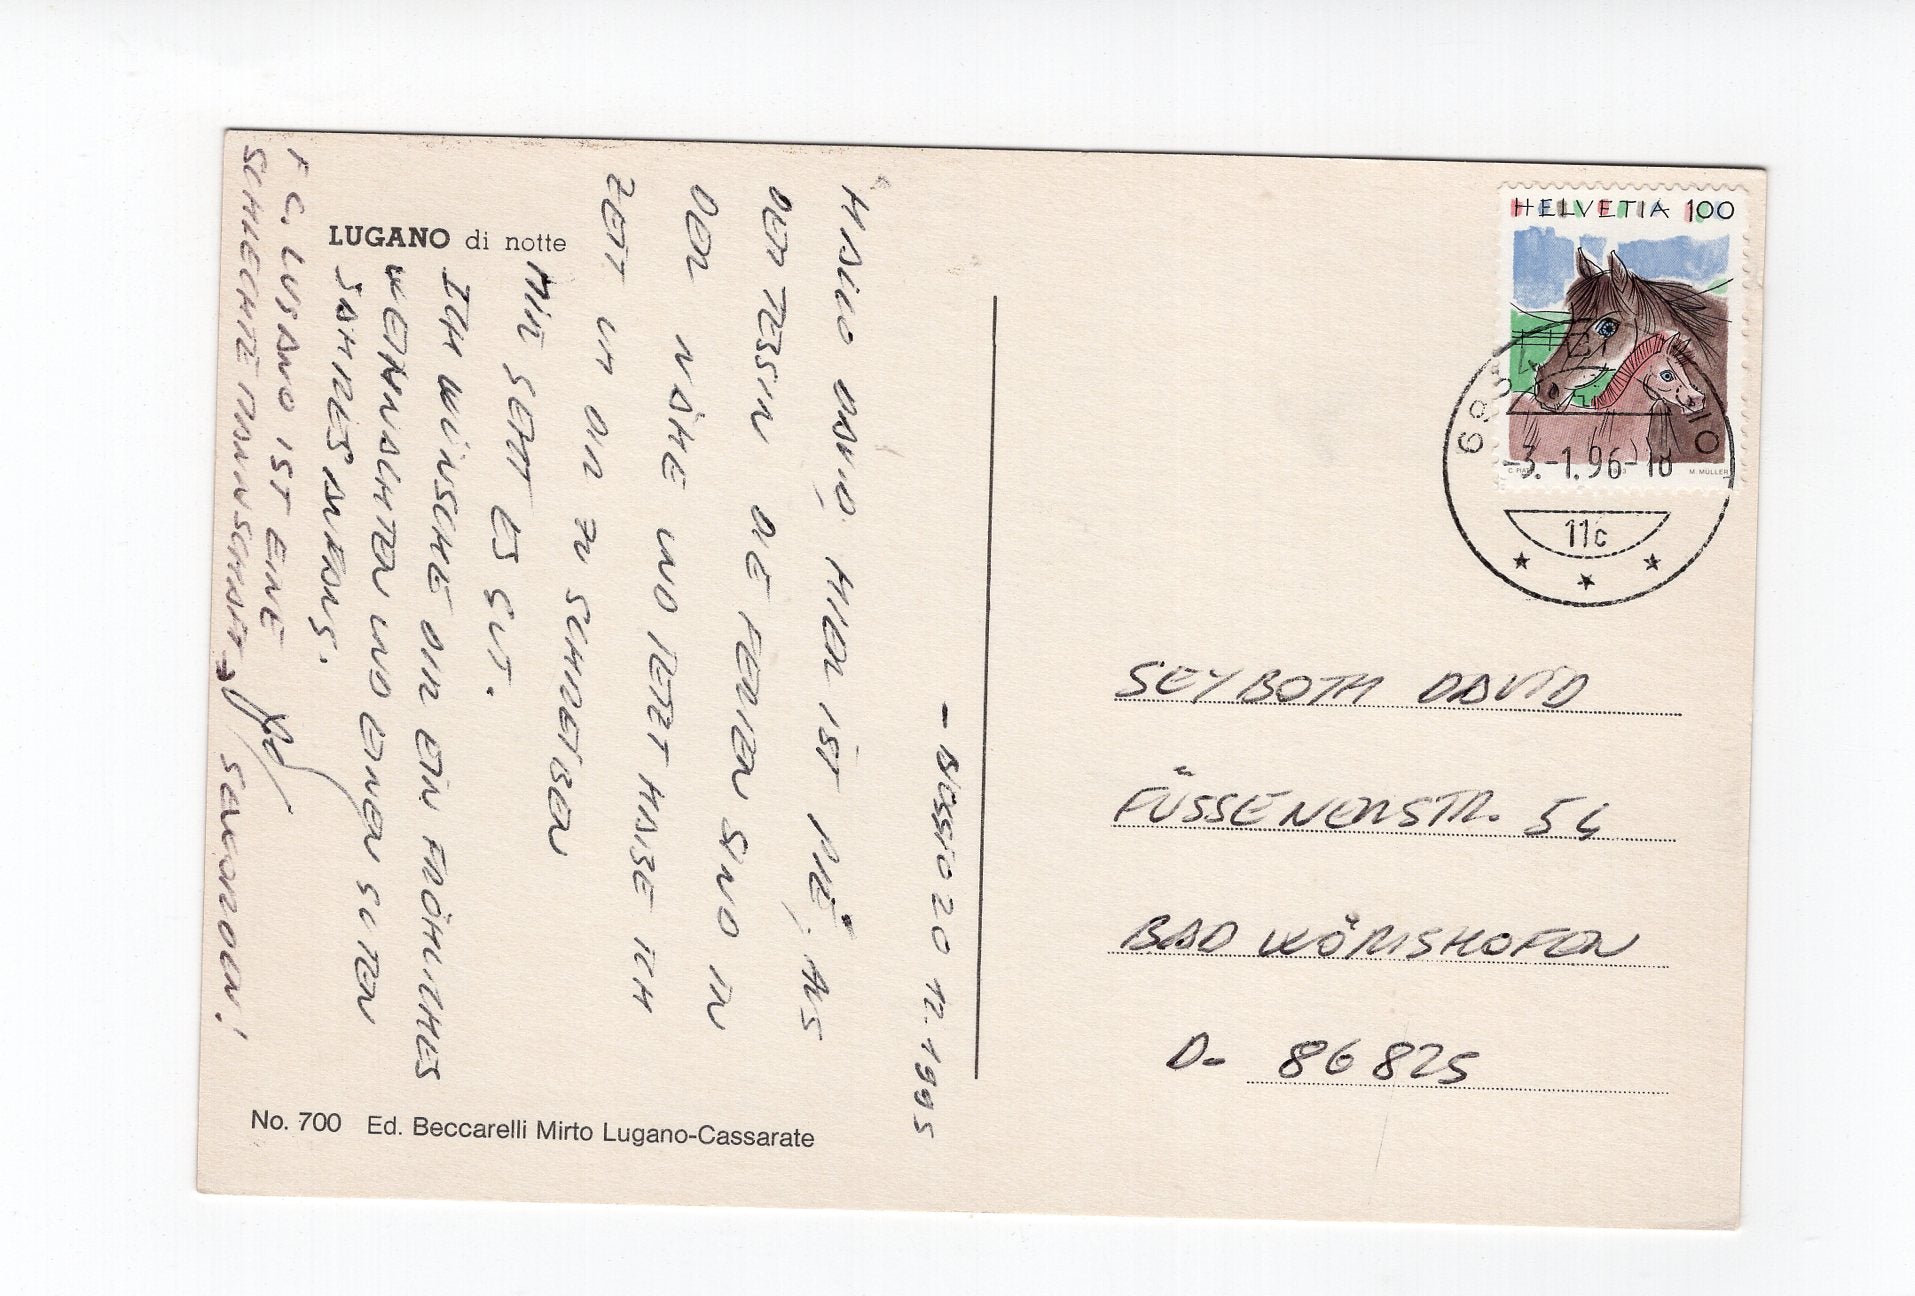 LUGANO di notte
- BISSIO 20 12.1995
HALLO DAVID. HIER IST PIE', AUS
DEM TESSIN DIE FERIEN SIND IN
DER NÄHE UND JETZT HABE ICH
ZEIT UM DIR ZU SCHREIBEN
MIR GEHT ES GUT.
ICH WÜNSCHE DIR EIN FRÖHLICHES
WEIHNACHTEN UND EINEN GUTEN
JAHRES ANFANG.
F.C. LUGANO IST EINE
SCHLECHTE MANNSCHAFT
No. 700 Ed. Beccarelli Mirto Lugano-Cassarate
HELVETIA 100
M. MÜLLER
-3.-1.96-18
11c
SEYBOTH DAVID
FÜSSENERSTR. 54
BAD WÖRISHOFEN
D- 86825